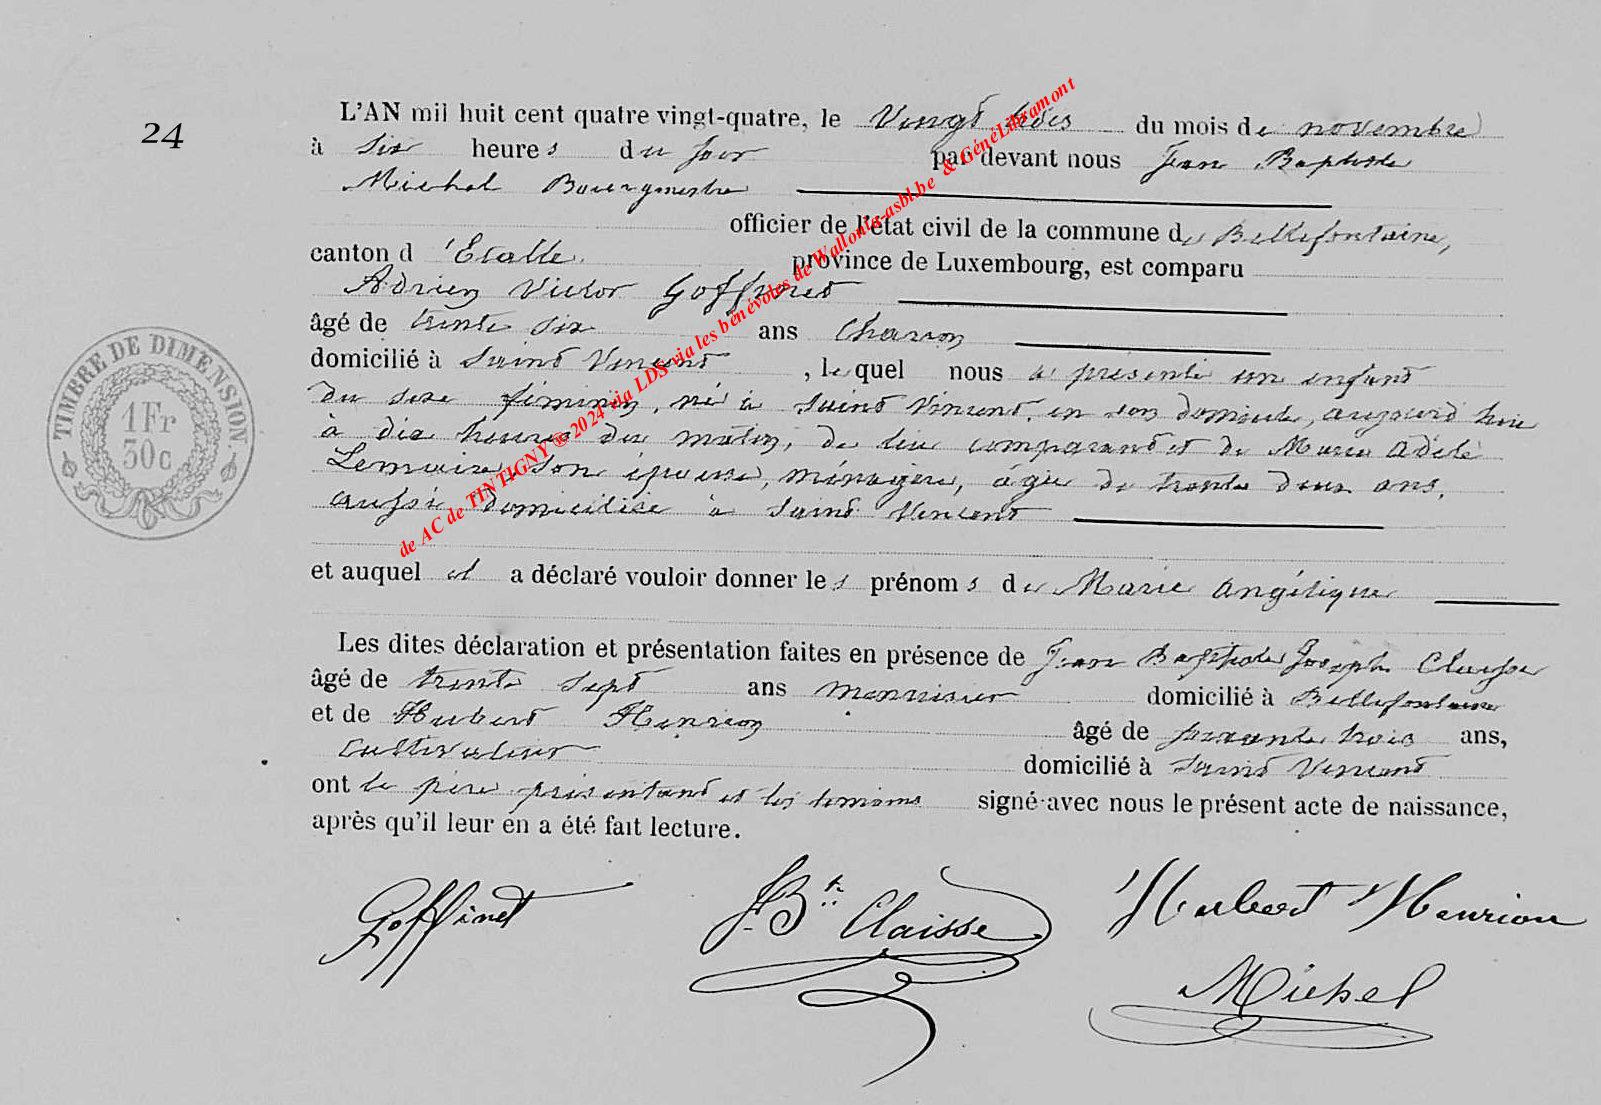 24
L'AN mil huit cent quatre vingt-quatre, le Vingt trois du mois de novembre
à six heures du soir par devant nous Jean Baptiste
Michel Bourgmestre
officier de l'état civil de la commune de Bellefontaine,
canton d'Etalle province de Luxembourg, est comparu
Adrien Victor Goffinet
âgé de trente six ans Charron
domicilié à Saint Vincent, lequel nous a présenté un enfant
du sexe féminin, né à Saint Vincent en son domicile, aujourd'hui
à dix heures du matin, de lui comparant et de Marie Adèle
Lemaire, son épouse, ménagère, âgée de trente deux ans,
aussi domiciliée à Saint Vincent
et auquel il a déclaré vouloir donner les prénoms de Marie Angélique
Les dites déclaration et présentation faites en présence de Jean Baptiste Joseph Claisse
âgé de trente sept ans menuisier domicilié à Bellefontaine
et de Hubert Henrion âgé de soixante trois ans,
cultivateur domicilié à Saint Vincent
ont le père présentant et les témoins signé avec nous le présent acte de naissance,
après qu'il leur en a été fait lecture.
Goffinet J.Bte Claisse Hubert Henrion
Michel
TIMBRE DE DIMENSION
1Fr
30c
de AC de TINTIGNY ® 2024 via LDS via les bénévoles de Wallonia-asbl.be & GénéLibramont